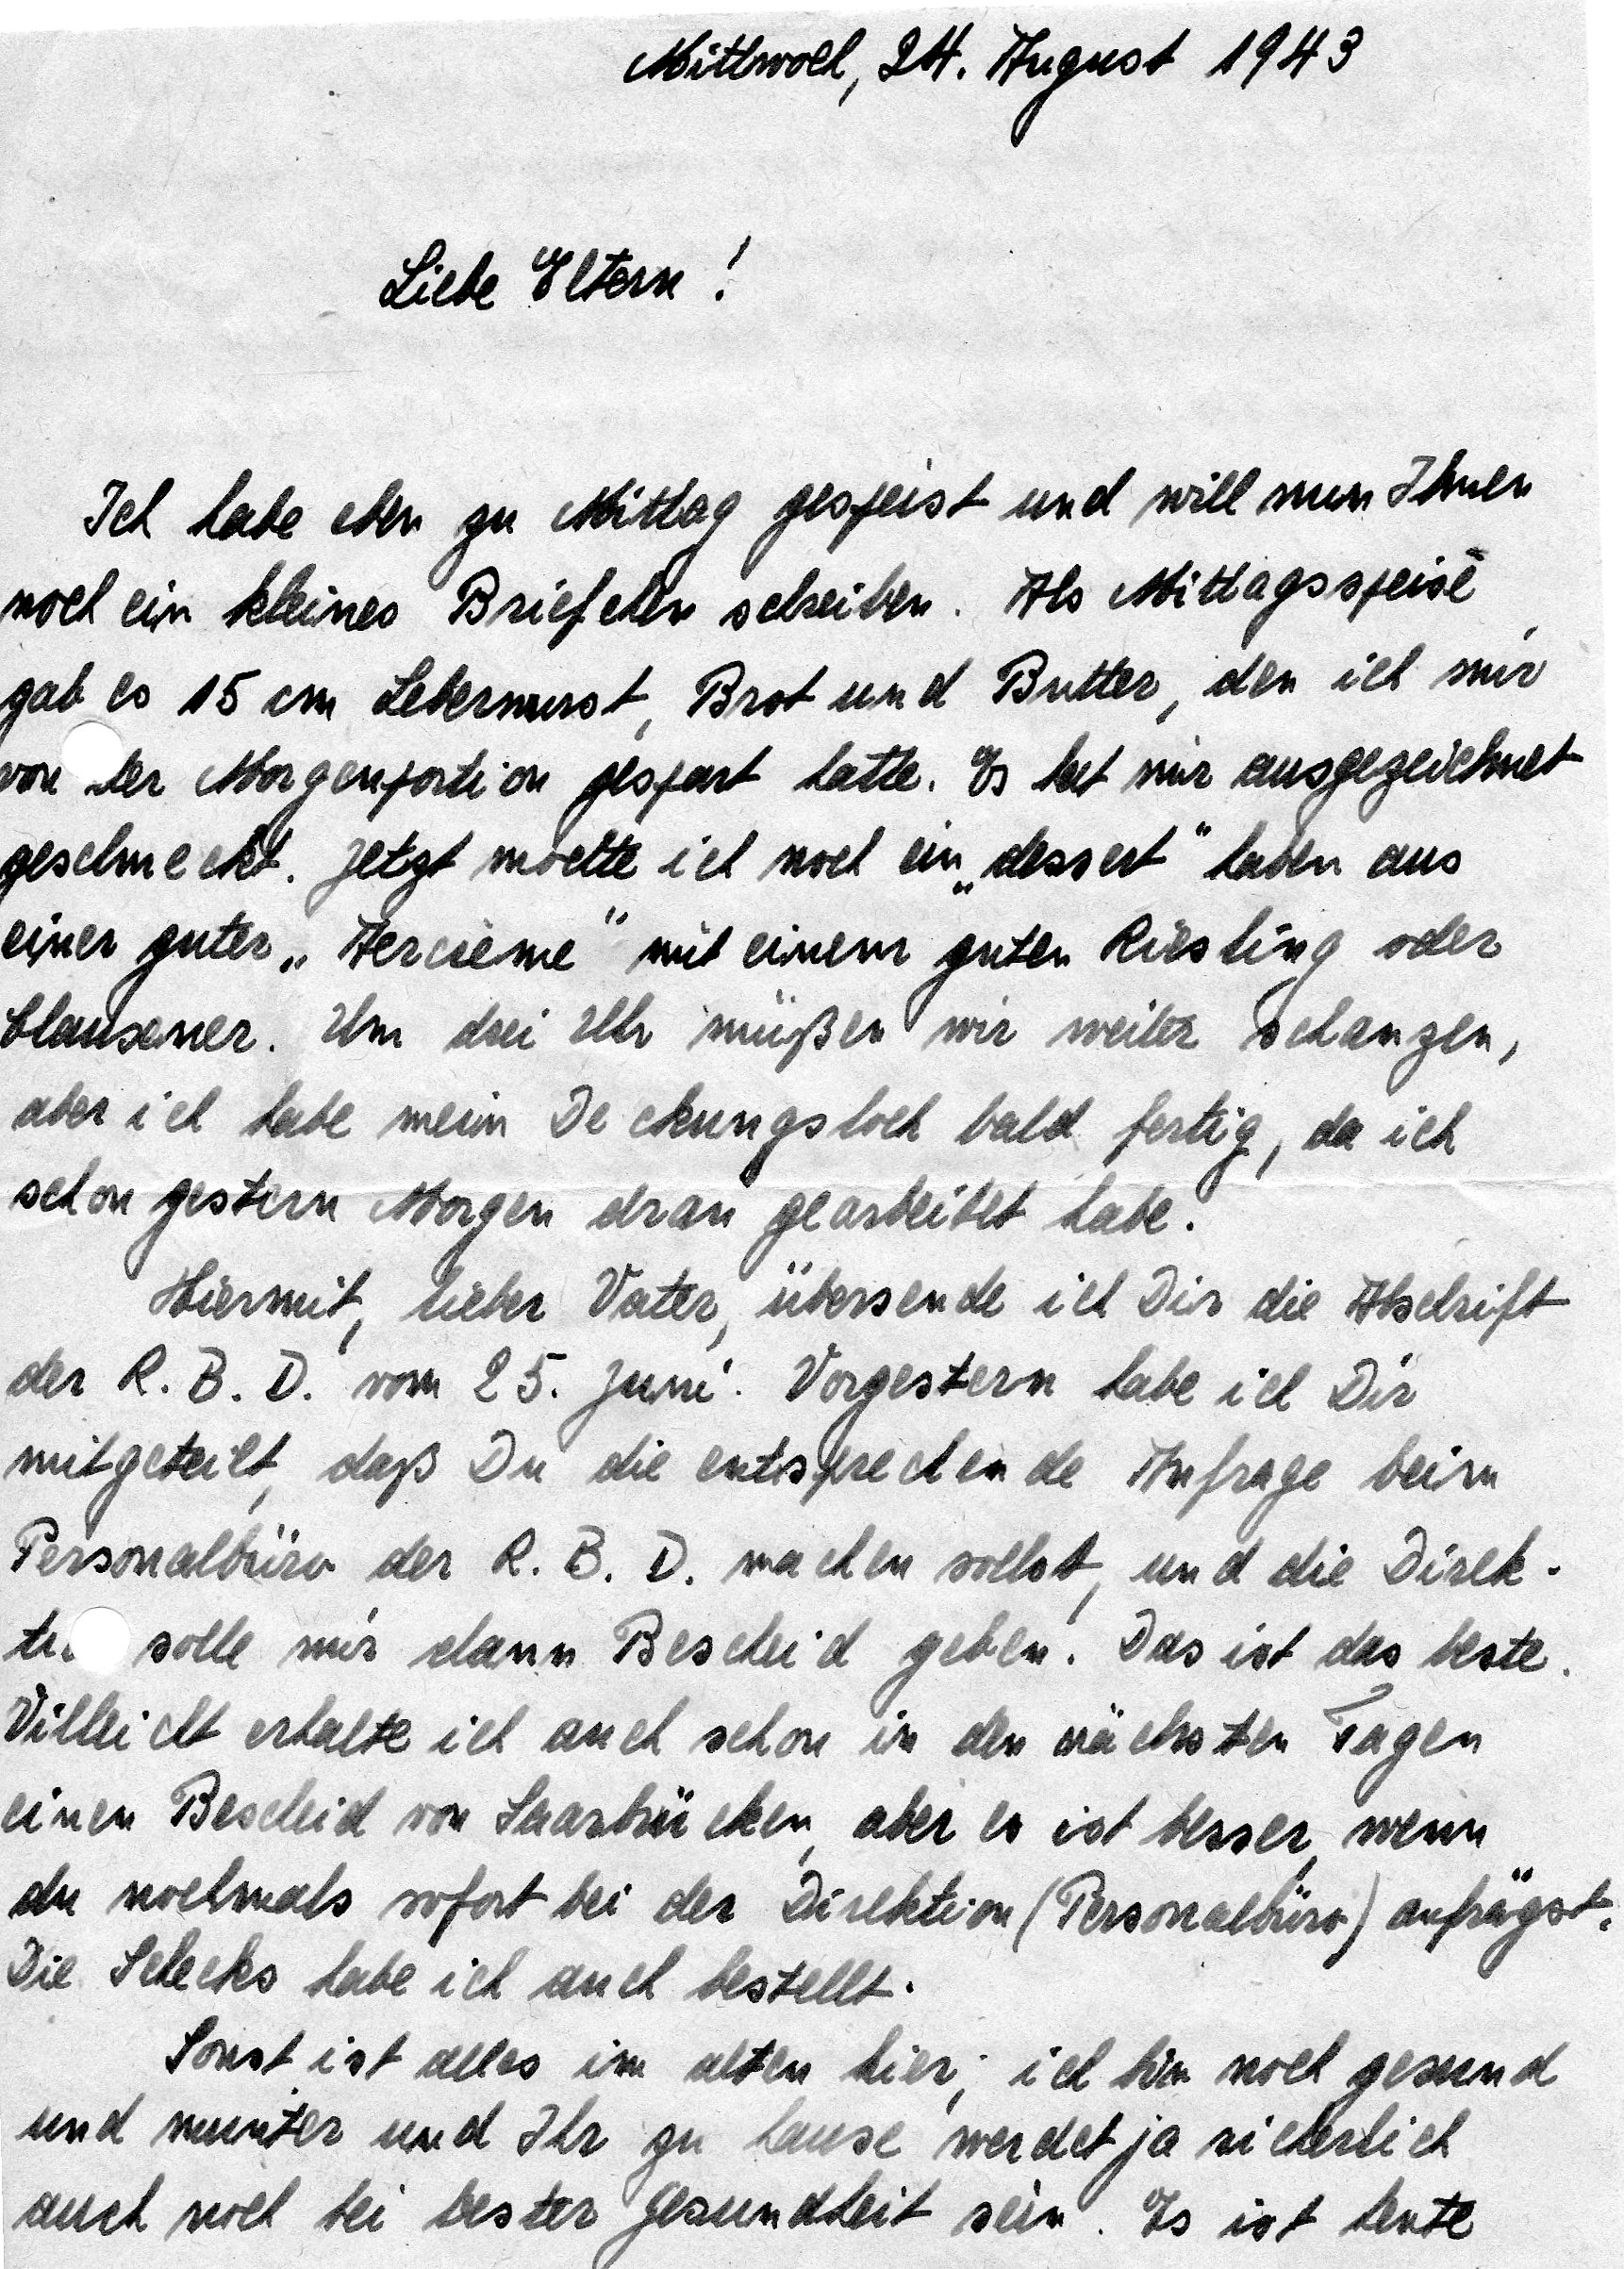 Mittwoch, 24. August 1943
Liebe Eltern!
Ich habe eben zu Mittag gespeist und will nun Ihnen
noch ein kleines Briefchen schreiben. Als Mittagsspeise
gab es 15 cm Leberwurst, Brot und Butter, den ich mir
von der Morgenportion gespart hatte. Es hat mir ausgezeichnet
geschmeckt. Jetzt möchte ich noch ein „dessert" haben aus
einer guter „ " mit einem guten Riesling oder
Clausener. Um drei Uhr müßen wir weiter schanzen,
aber ich habe mein Deckungsloch bald fertig, da ich
schon gestern Morgen dran gearbeitet habe.
Hiermit, lieber Vater, übersende ich Dir die Abschrift
der R. B. D. vom 25. Juni. Vorgestern habe ich Dir
mitgeteilt, daß Du die entsprechende Anfrage beim
Personalbüro der R. B. D. machen sollst, und die Direk-
ti solle mir dann Bescheid geben. Das ist das beste.
Villeicht erhalte ich auch schon in den nächsten Tagen
einen Bescheid von Saarbrücken, aber es ist besser, wenn
du nochmals sofort bei der Direktion (Personalbüro) anfrägst.
Die Schecks habe ich auch bestellt.
Sonst ist alles im alten hier; ich bin noch gesund
und munter und Ihr zu hause werdet ja sicherlich
auch noch bei bester Gesundheit sein. Es ist heute